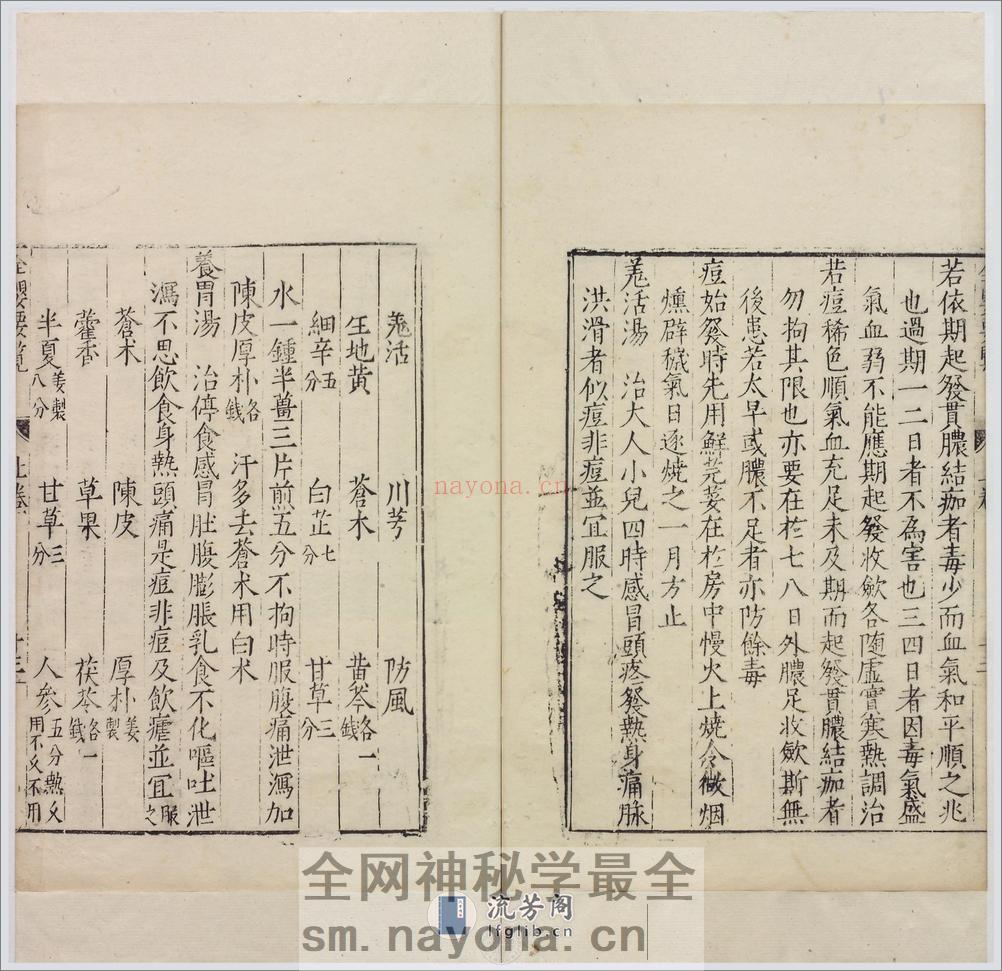 若依期起發貫膿結痂者毒少而血氣和平順之兆
也過期一二日者不為害也三四日者因毒氣盛
氣血弱不能應期起發收歛各隨虛實寒熱調治
若痘稀色順氣血充足未及期而起發貫膿結痂者
勿拘其限也亦要在於七八日外膿足收歛斯無
後患若太早或膿不足者亦防餘毒
痘始發時先用鮮芫荽在於房中慢火上燒令微烟
燻辟穢氣日逐燒之一月方止
羗活湯　治大人小兒四時感冒頭疼發熱身痛脉
洪滑者似痘非痘並宜服之
羗活　川芎　防風
生地黃　蒼术　黃芩各一錢
細辛五分　白芷七分　甘草三分
水一鍾半薑三片煎五分不拘時服腹痛泄瀉加
陳皮厚朴各錢　汗多去蒼术用白术
養胃湯　治停食感冒肚腹膨脹乳食不化嘔吐泄
瀉不思飲食身熱頭痛是痘非痘及飲瘧並宜服之
蒼术　陳皮　厚朴姜製
藿香　草果　茯苓各一錢
半夏姜製八分　甘草三分　人參五分熱不用不又不用
上卷　十三
nayona.cn
全网神秘学最全
流芳阁
lfglib.cn
sm.nayona.cn